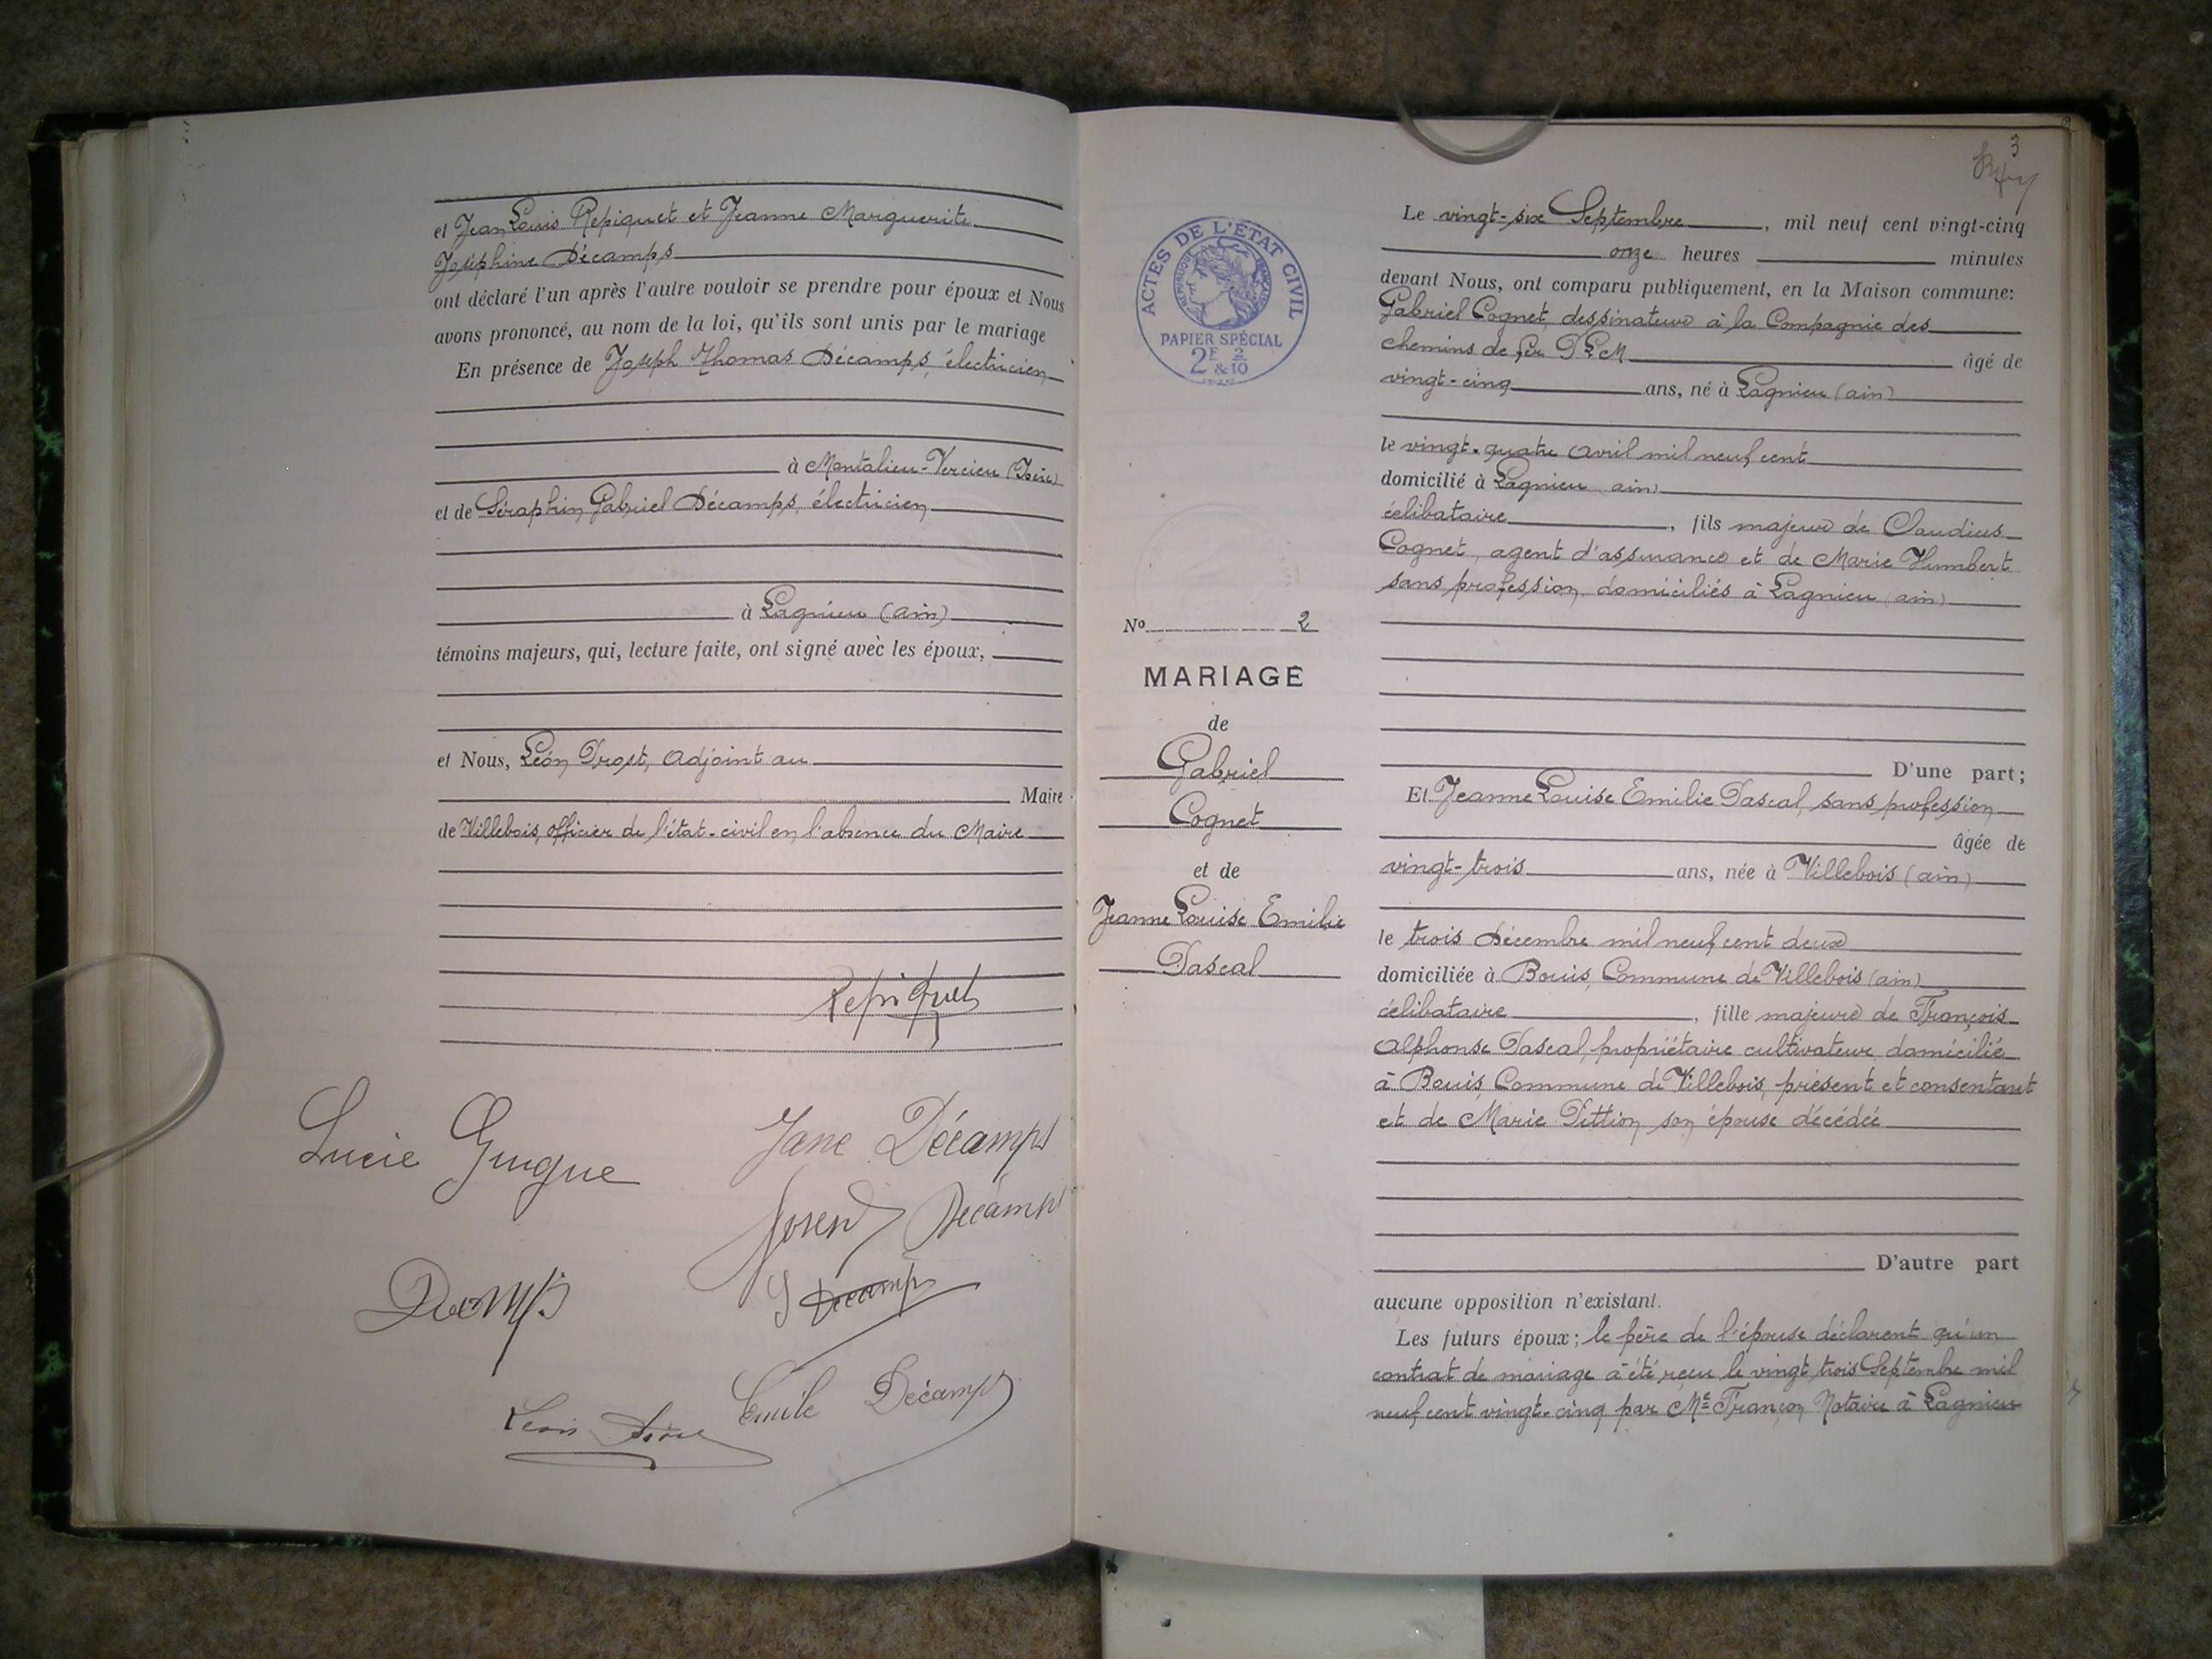 et Jean Louis Repiquet et Jeanne Marguerite
Joséphine Décamps
ont déclaré l'un après l'autre vouloir se prendre pour époux et Nous
avons prononcé, au nom de la loi, qu'ils sont unis par le mariage
En présence de Joseph Thomas Décamps, électricien
à Montalieu-Vercieu (Isère)
et de Séraphin Gabriel Décamps, électricien
à Lagnieu (ain)
témoins majeurs, qui, lecture faite, ont signé avec les époux,
et Nous, Léon Drost, Adjoint au
Maire
de Villebois, officier de l'état-civil en l'absence du Maire
Repiquet
Lucie Guigue
Jane Décamps
Joseph Décamps
Décamps
S Decamps
Emile Décamps
Léon
3
ACTES DE L'ÉTAT CIVIL
RÉPUBLIQUE FRANÇAISE
PAPIER SPÉCIAL
2F & 2/10
No 2
MARIAGE
de
Gabriel
Cognet
et de
Jeanne Louise Emilie
Pascal
Le vingt-six Septembre, mil neuf cent vingt-cinq
onze heures minutes
devant Nous, ont comparu publiquement, en la Maison commune:
Gabriel Cognet, dessinateur à la Compagnie des
chemins de fer PLM âgé de
vingt-cinq ans, né à Lagnieu (ain)
le vingt-quatre avril mil neuf cent
domicilié à Lagnieu (ain)
célibataire, fils majeur de Claudius
Cognet, agent d'assurance et de Marie Humbert
sans profession domiciliés à Lagnieu (ain)
D'une part;
Et Jeanne Louise Emilie Pascal, sans profession
âgée de
vingt-trois ans, née à Villebois (ain)
le trois Décembre mil neuf cent deux
domiciliée à Bouis, Commune de Villebois (ain)
célibataire, fille majeure de François
Alphonse Pascal, propriétaire cultivateur, domicilié
à Bouis, Commune de Villebois, présent et consentant
et de Marie Pittion son épouse décédée
D'autre part
aucune opposition n'existant.
Les futurs époux; le père de l'épouse déclarent qu'un
contrat de mariage a été reçu le vingt trois Septembre mil
neuf cent vingt-cinq par Me Françon Notaire à Lagnieu